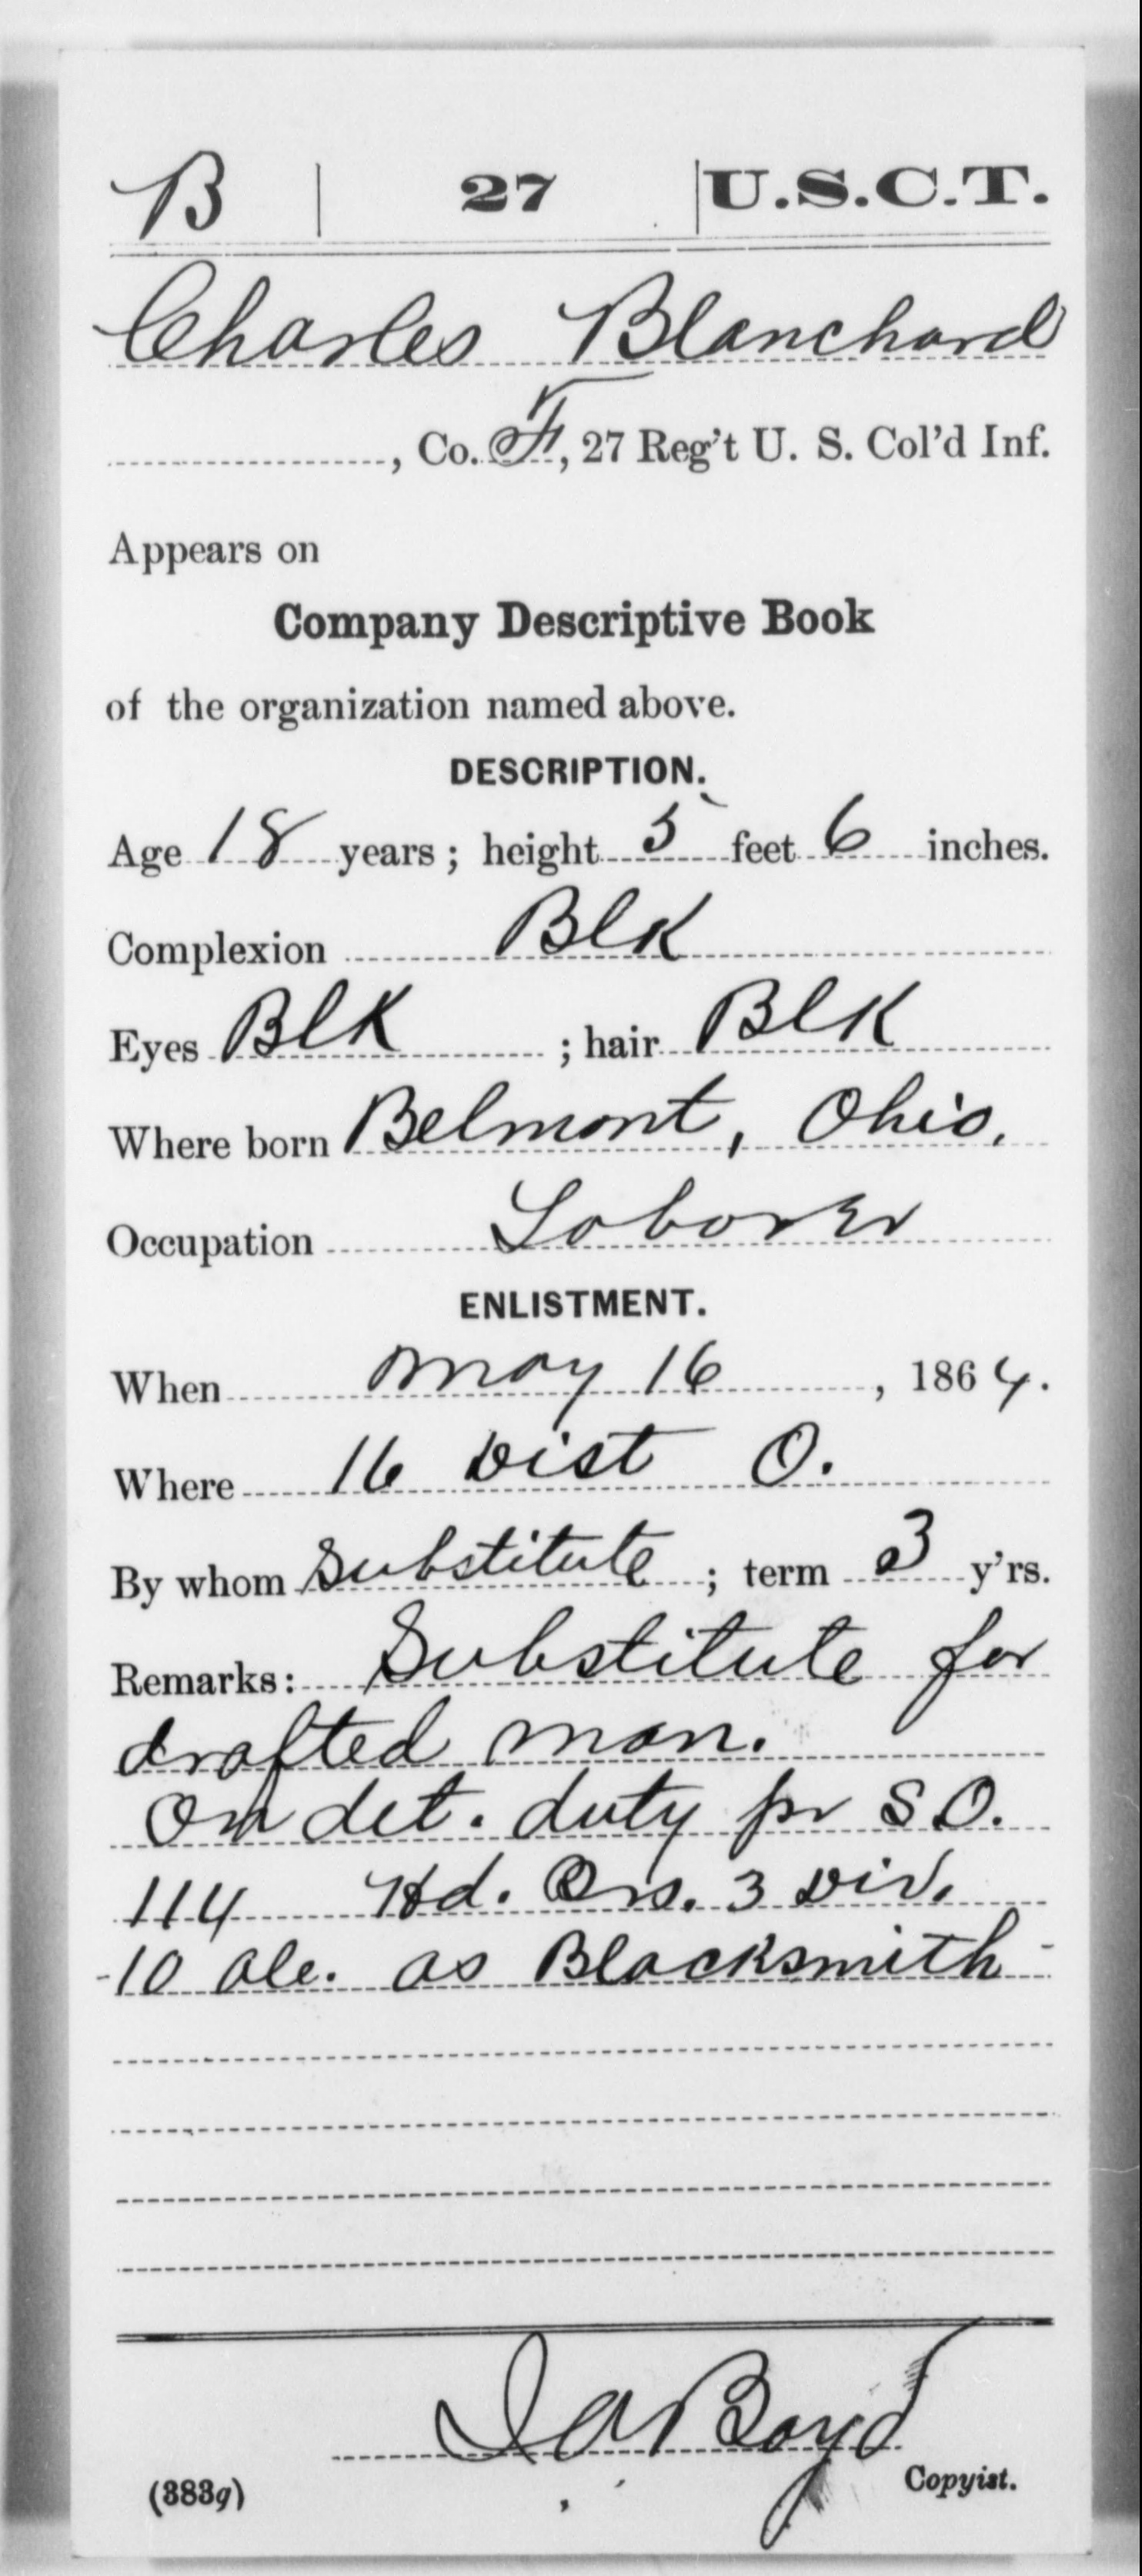 B | 27 | U.S.C.T.
Charles Blanchard
, Co. F, 27 Reg't U. S. Col'd Inf.
Appears on
Company Descriptive Book
of the organization named above.
DESCRIPTION.
Age 18 years; height 5 feet 6 inches.
Complexion Blk
Eyes Blk; hair Blk
Where born Belmont, Ohio.
Occupation Laborer
ENLISTMENT.
When May 16, 1864.
Where 16 Dist O.
By whom Substitute; term 3 y'rs.
Remarks: Substitute for
drafted man.
On det. duty pr S.O.
114 Hd. Qrs. 3 Div.
10 as Blacksmith
Boyd
Copyist.
(383g)